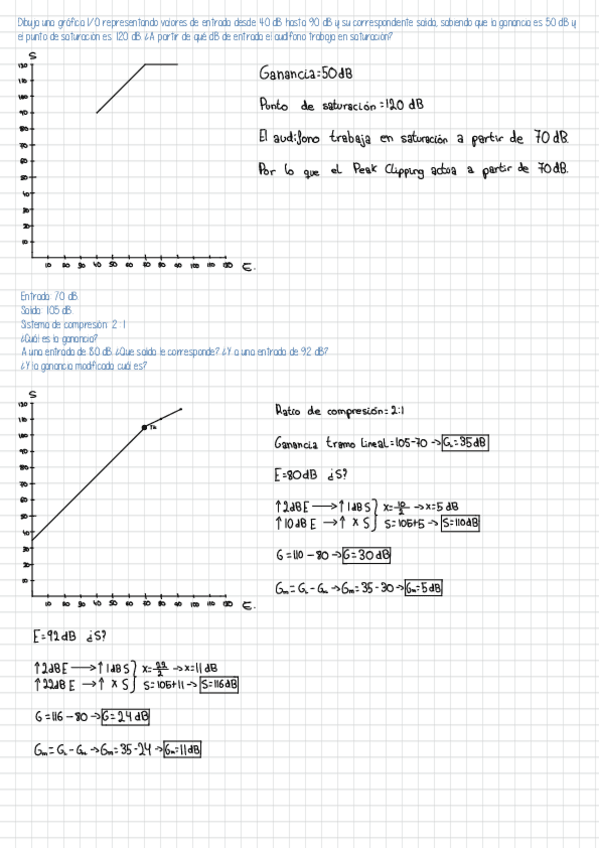 Dibuja una gráfica I/O representando valores de entrada desde 40 dB hasta 90 dB y su correspondente salida, sabiendo que la ganancia es 50 dB y
el punto de saturación es 120 dB ¿A partir de qué dB de entrada el audífono trabaja en saturación?
S
120
110
100
90
80
70
60
50
40
30
20
10
10 20 30 40 50 60 70 80 90 100 110 120 E.
Ganancia=50dB
Punto de saturación=120 dB
El audífono trabaja en saturación a partir de 70 dB.
Por lo que el Peak Clipping actua a partir de 70dB.
Entrada: 70 dB
Salida: 105 dB
Sistema de compresión 2:1
¿Cuál es la ganancia?
A una entrada de 80 dB ¿Que salida le corresponde? ¿Y a una entrada de 92 dB?
¿Y la ganancia modificada cuál es?
S
120
110
100
90
80
70
60
50
40
30
20
10
TK
10 20 30 40 50 60 70 80 90 100 110 120 E.
Ratio de compresión=2:1
Ganancia tramo lineal=105-70→G=35dB
E=80dB ¿S?
↑2dB E→↑1dB S} x=10/2→x=5 dB
↑10dB E→↑ x S} S=105+5→S=110dB
G=110-80→G=30dB
Gm=G-G→Gm=35-30→Gm=5dB
E=92dB ¿S?
↑2dB E→↑1dB S} x=22/2→x=11dB
↑22dB E→↑ x S} S=105+11→S=116dB
G=116-80→G=24dB
Gm=G-G→Gm=35-24→Gm=11dB